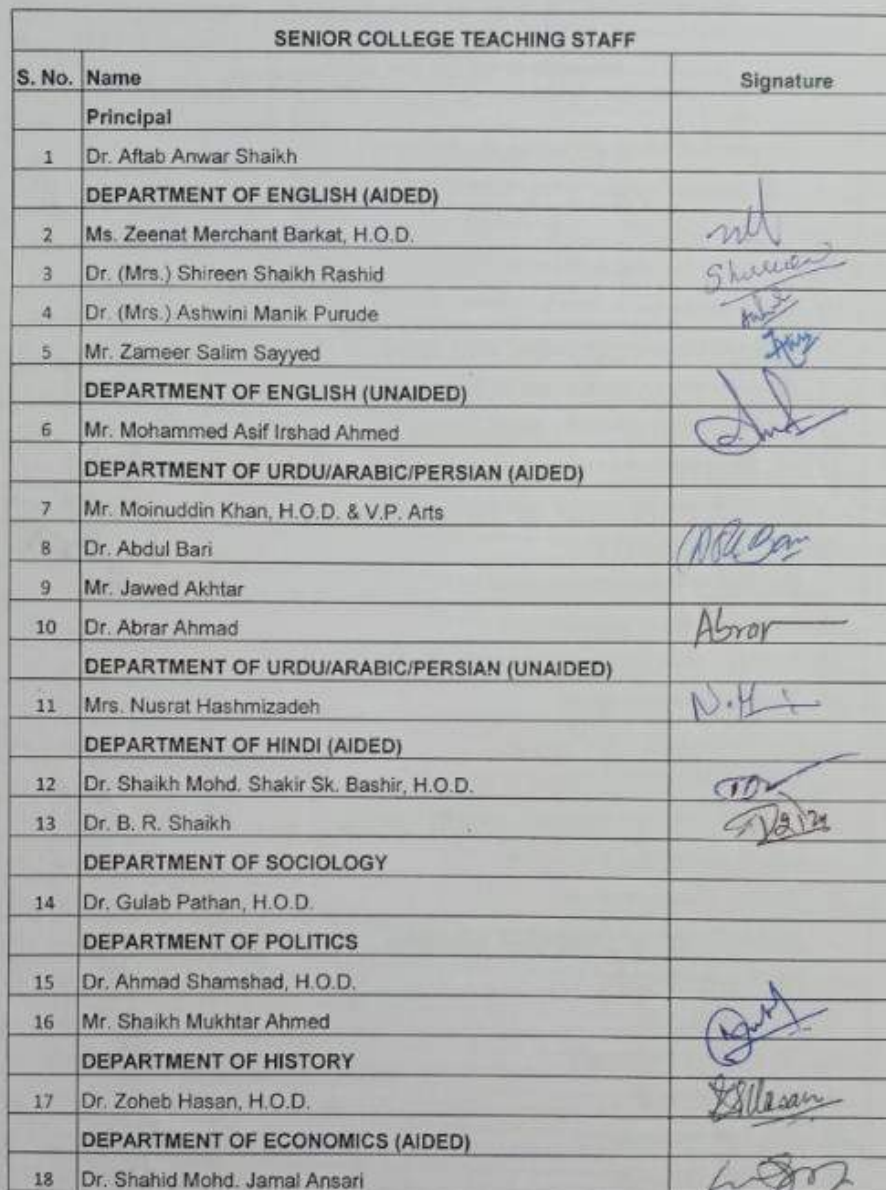 SENIOR COLLEGE TEACHING STAFF
S. No. Name Signature
Principal
1 Dr. Aftab Anwar Shaikh
DEPARTMENT OF ENGLISH (AIDED)
2 Ms. Zeenat Merchant Barkat, H.O.D.
3 Dr. (Mrs.) Shireen Shaikh Rashid Shireen
4 Dr. (Mrs.) Ashwini Manik Purude
5 Mr. Zameer Salim Sayyed
DEPARTMENT OF ENGLISH (UNAIDED)
6 Mr. Mohammed Asif Irshad Ahmed
DEPARTMENT OF URDU/ARABIC/PERSIAN (AIDED)
7 Mr. Moinuddin Khan, H.O.D. & V.P. Arts
8 Dr. Abdul Bari
9 Mr. Jawed Akhtar
10 Dr. Abrar Ahmad Abrar
DEPARTMENT OF URDU/ARABIC/PERSIAN (UNAIDED)
11 Mrs. Nusrat Hashmizadeh
DEPARTMENT OF HINDI (AIDED)
12 Dr. Shaikh Mohd. Shakir Sk. Bashir, H.O.D.
13 Dr. B. R. Shaikh
DEPARTMENT OF SOCIOLOGY
14 Dr. Gulab Pathan, H.O.D.
DEPARTMENT OF POLITICS
15 Dr. Ahmad Shamshad, H.O.D.
16 Mr. Shaikh Mukhtar Ahmed
DEPARTMENT OF HISTORY
17 Dr. Zoheb Hasan, H.O.D.
DEPARTMENT OF ECONOMICS (AIDED)
18 Dr. Shahid Mohd. Jamal Ansari